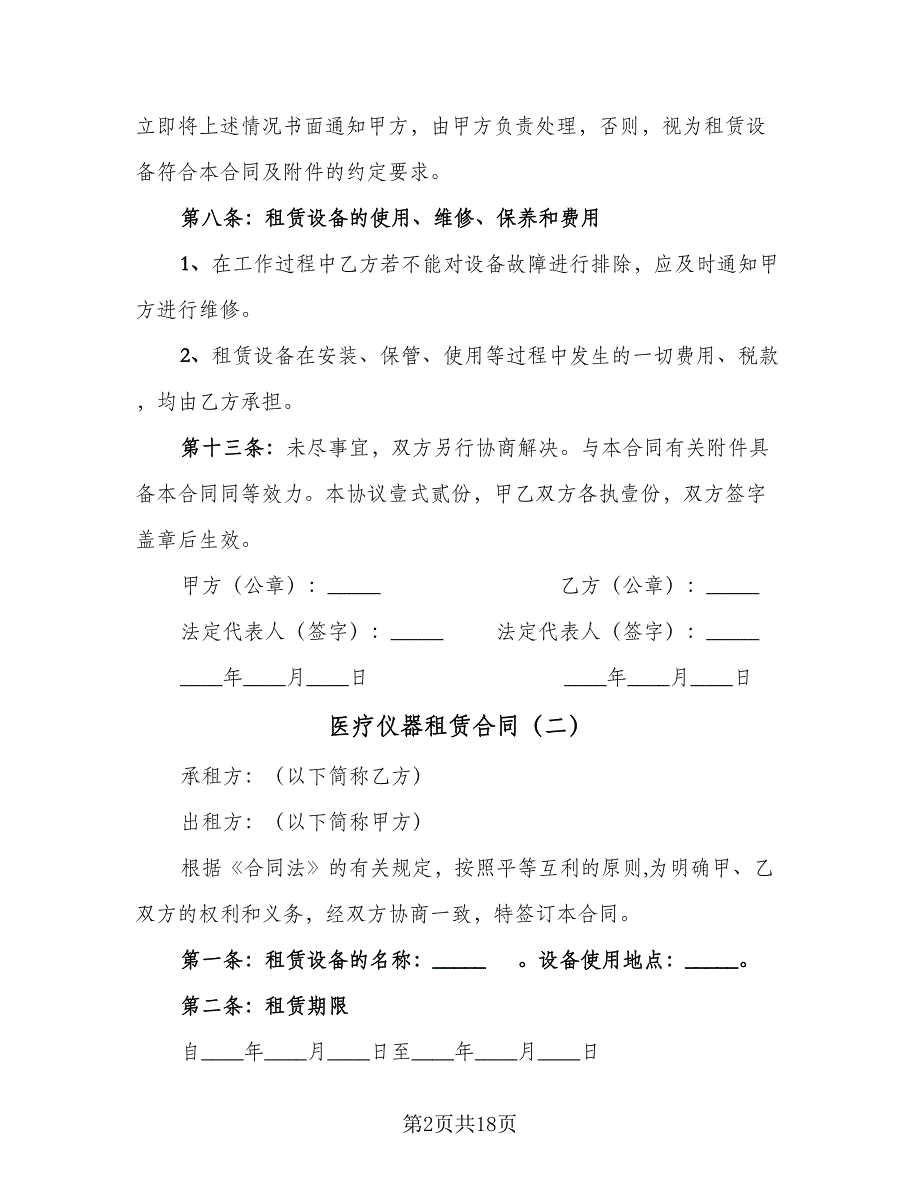 立即将上述情况书面通知甲方，由甲方负责处理，否则，视为租赁设
备符合本合同及附件的约定要求。
第八条：租赁设备的使用、维修、保养和费用
1、在工作过程中乙方若不能对设备故障进行排除，应及时通知甲
方进行维修。
2、租赁设备在安装、保管、使用等过程中发生的一切费用、税款
，均由乙方承担。
第十三条：未尽事宜，双方另行协商解决。与本合同有关附件具
备本合同同等效力。本协议壹式贰份，甲乙双方各执壹份，双方签字
盖章后生效。
甲方（公章）：_____ 乙方（公章）：_____
法定代表人（签字）：_____ 法定代表人（签字）：_____
____年____月____日 ____年____月____日
医疗仪器租赁合同（二）
承租方：（以下简称乙方）
出租方：（以下简称甲方）
根据《合同法》的有关规定，按照平等互利的原则,为明确甲、乙
双方的权利和义务，经双方协商一致，特签订本合同。
第一条：租赁设备的名称：_____ 。设备使用地点：_____。
第二条：租赁期限
自____年____月____日至____年____月____日
第2页共18页